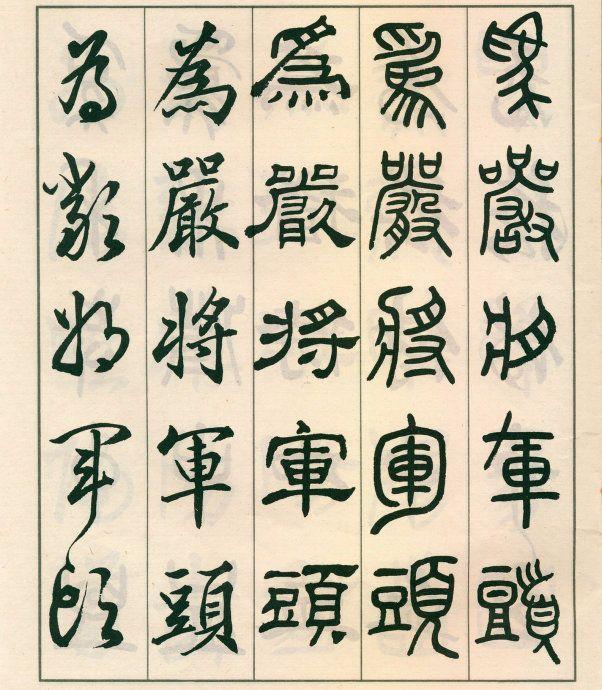 為嚴將軍頭
為嚴將軍頭
為嚴將軍頭
為嚴將軍頭
為嚴將軍頭